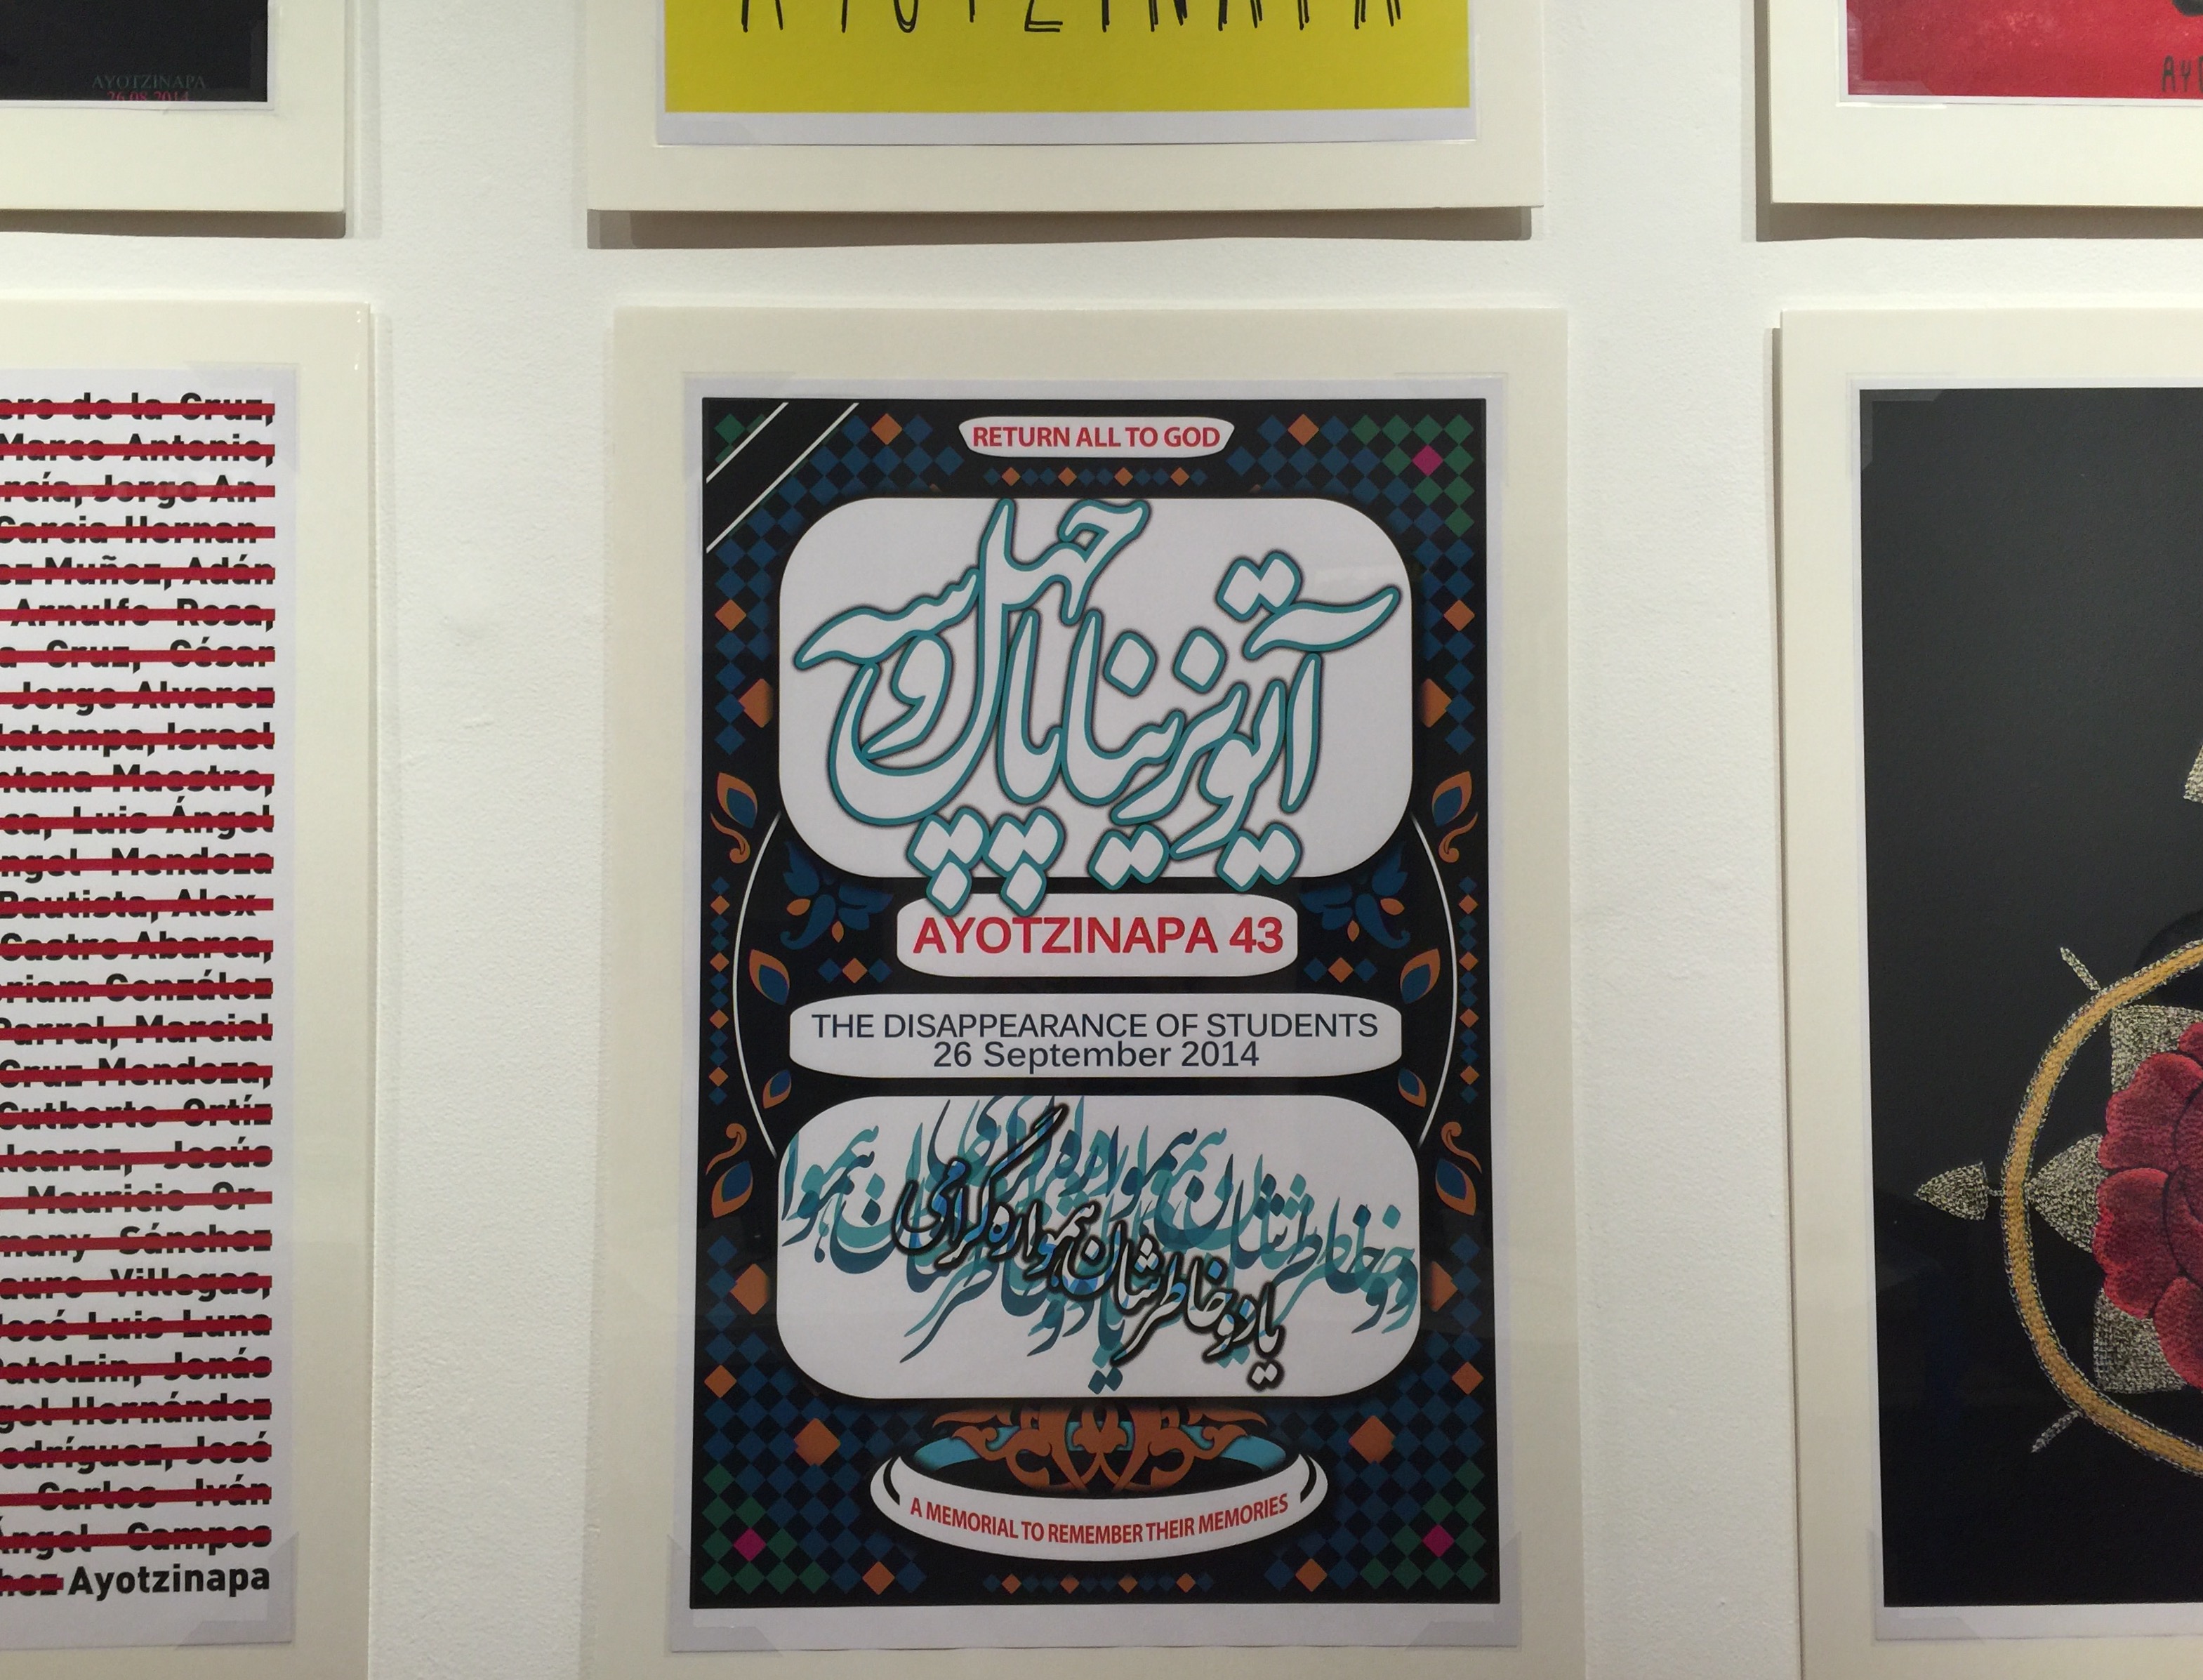 AYOTZINAPA
26.08.2014
AYOTZINAPA
ero de la Cruz,
Marco Antonio,
rcía, Jorge An
García Hernan
ez Muñoz, Adán
Arnulfo Rosa,
a Cruz, César
Jorge Alvarez
latempa, Israel
ntana Maestro,
ca, Luis Ángel
ngel Mendoza
Bautista, Alex
Castro Abarca,
riam González
Parral, Marcial
Cruz Mendoza,
Cutberto Ortíz
lcaraz, Jesús
Mauricio Or-
many Sánchez
auro Villegas,
José Luis Luna
Patolzin, Jonás
gel Hernández
odríguez, José
Carlos Iván
Ángel Campos
hez Ayotzinapa
RETURN ALL TO GOD
آیوتزیناپا چهل و سه
AYOTZINAPA 43
THE DISAPPEARANCE OF STUDENTS
26 September 2014
یاد و خاطرشان همواره گرامی
A MEMORIAL TO REMEMBER THEIR MEMORIES